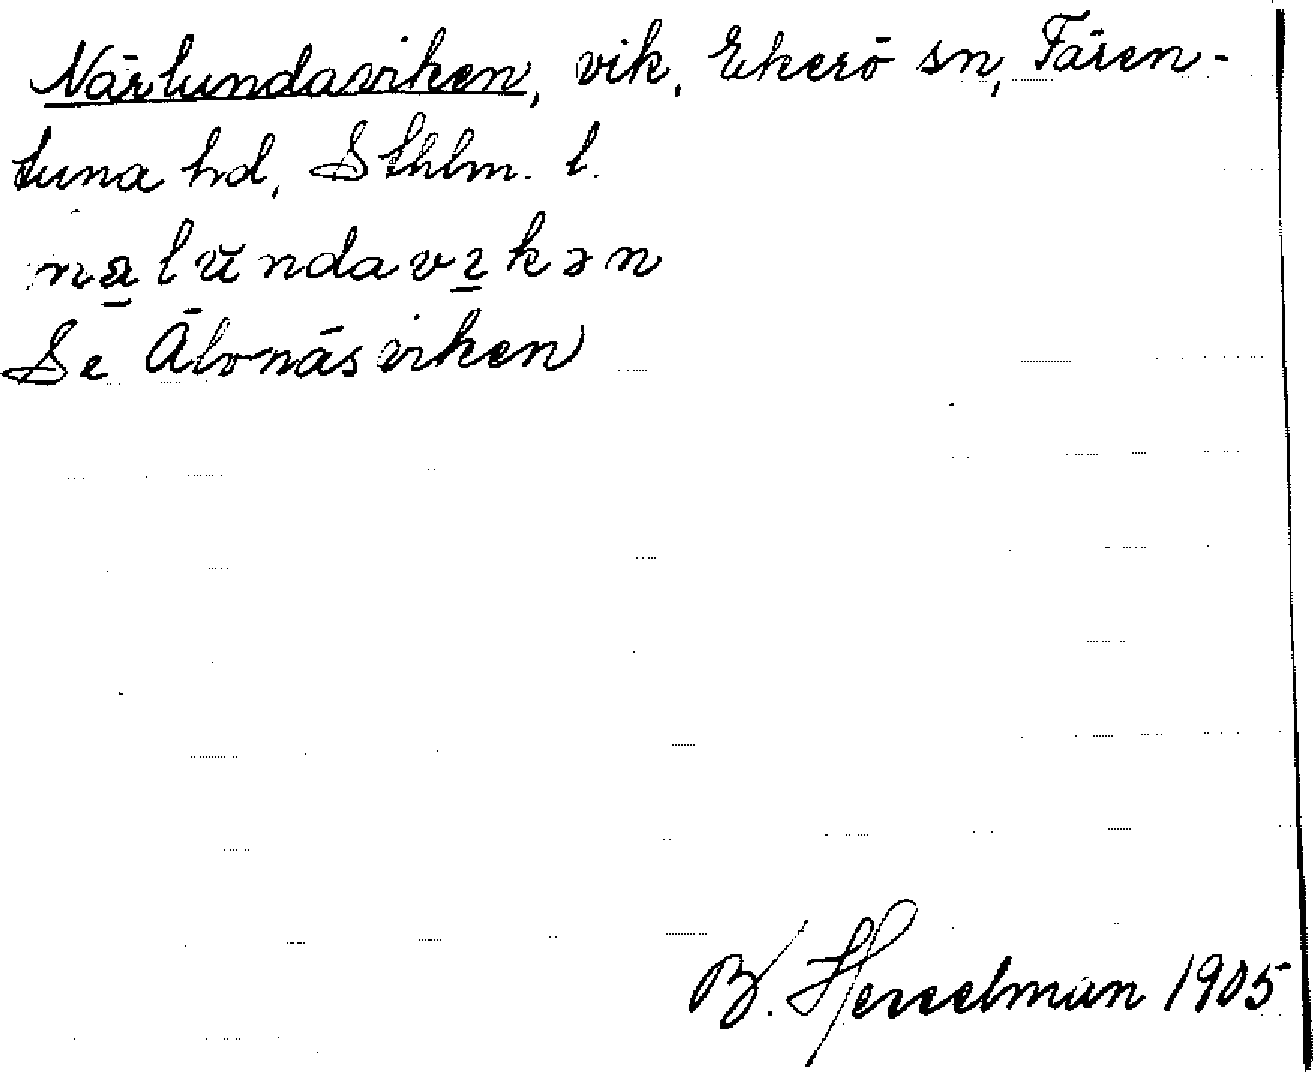 Närlundaviken, vik, Ekerö sn, Fären-
tuna hd, Sthlm. l.
nä̱lŭndavı̱kən
Se Älvnäsviken
B. Hesselman 1905